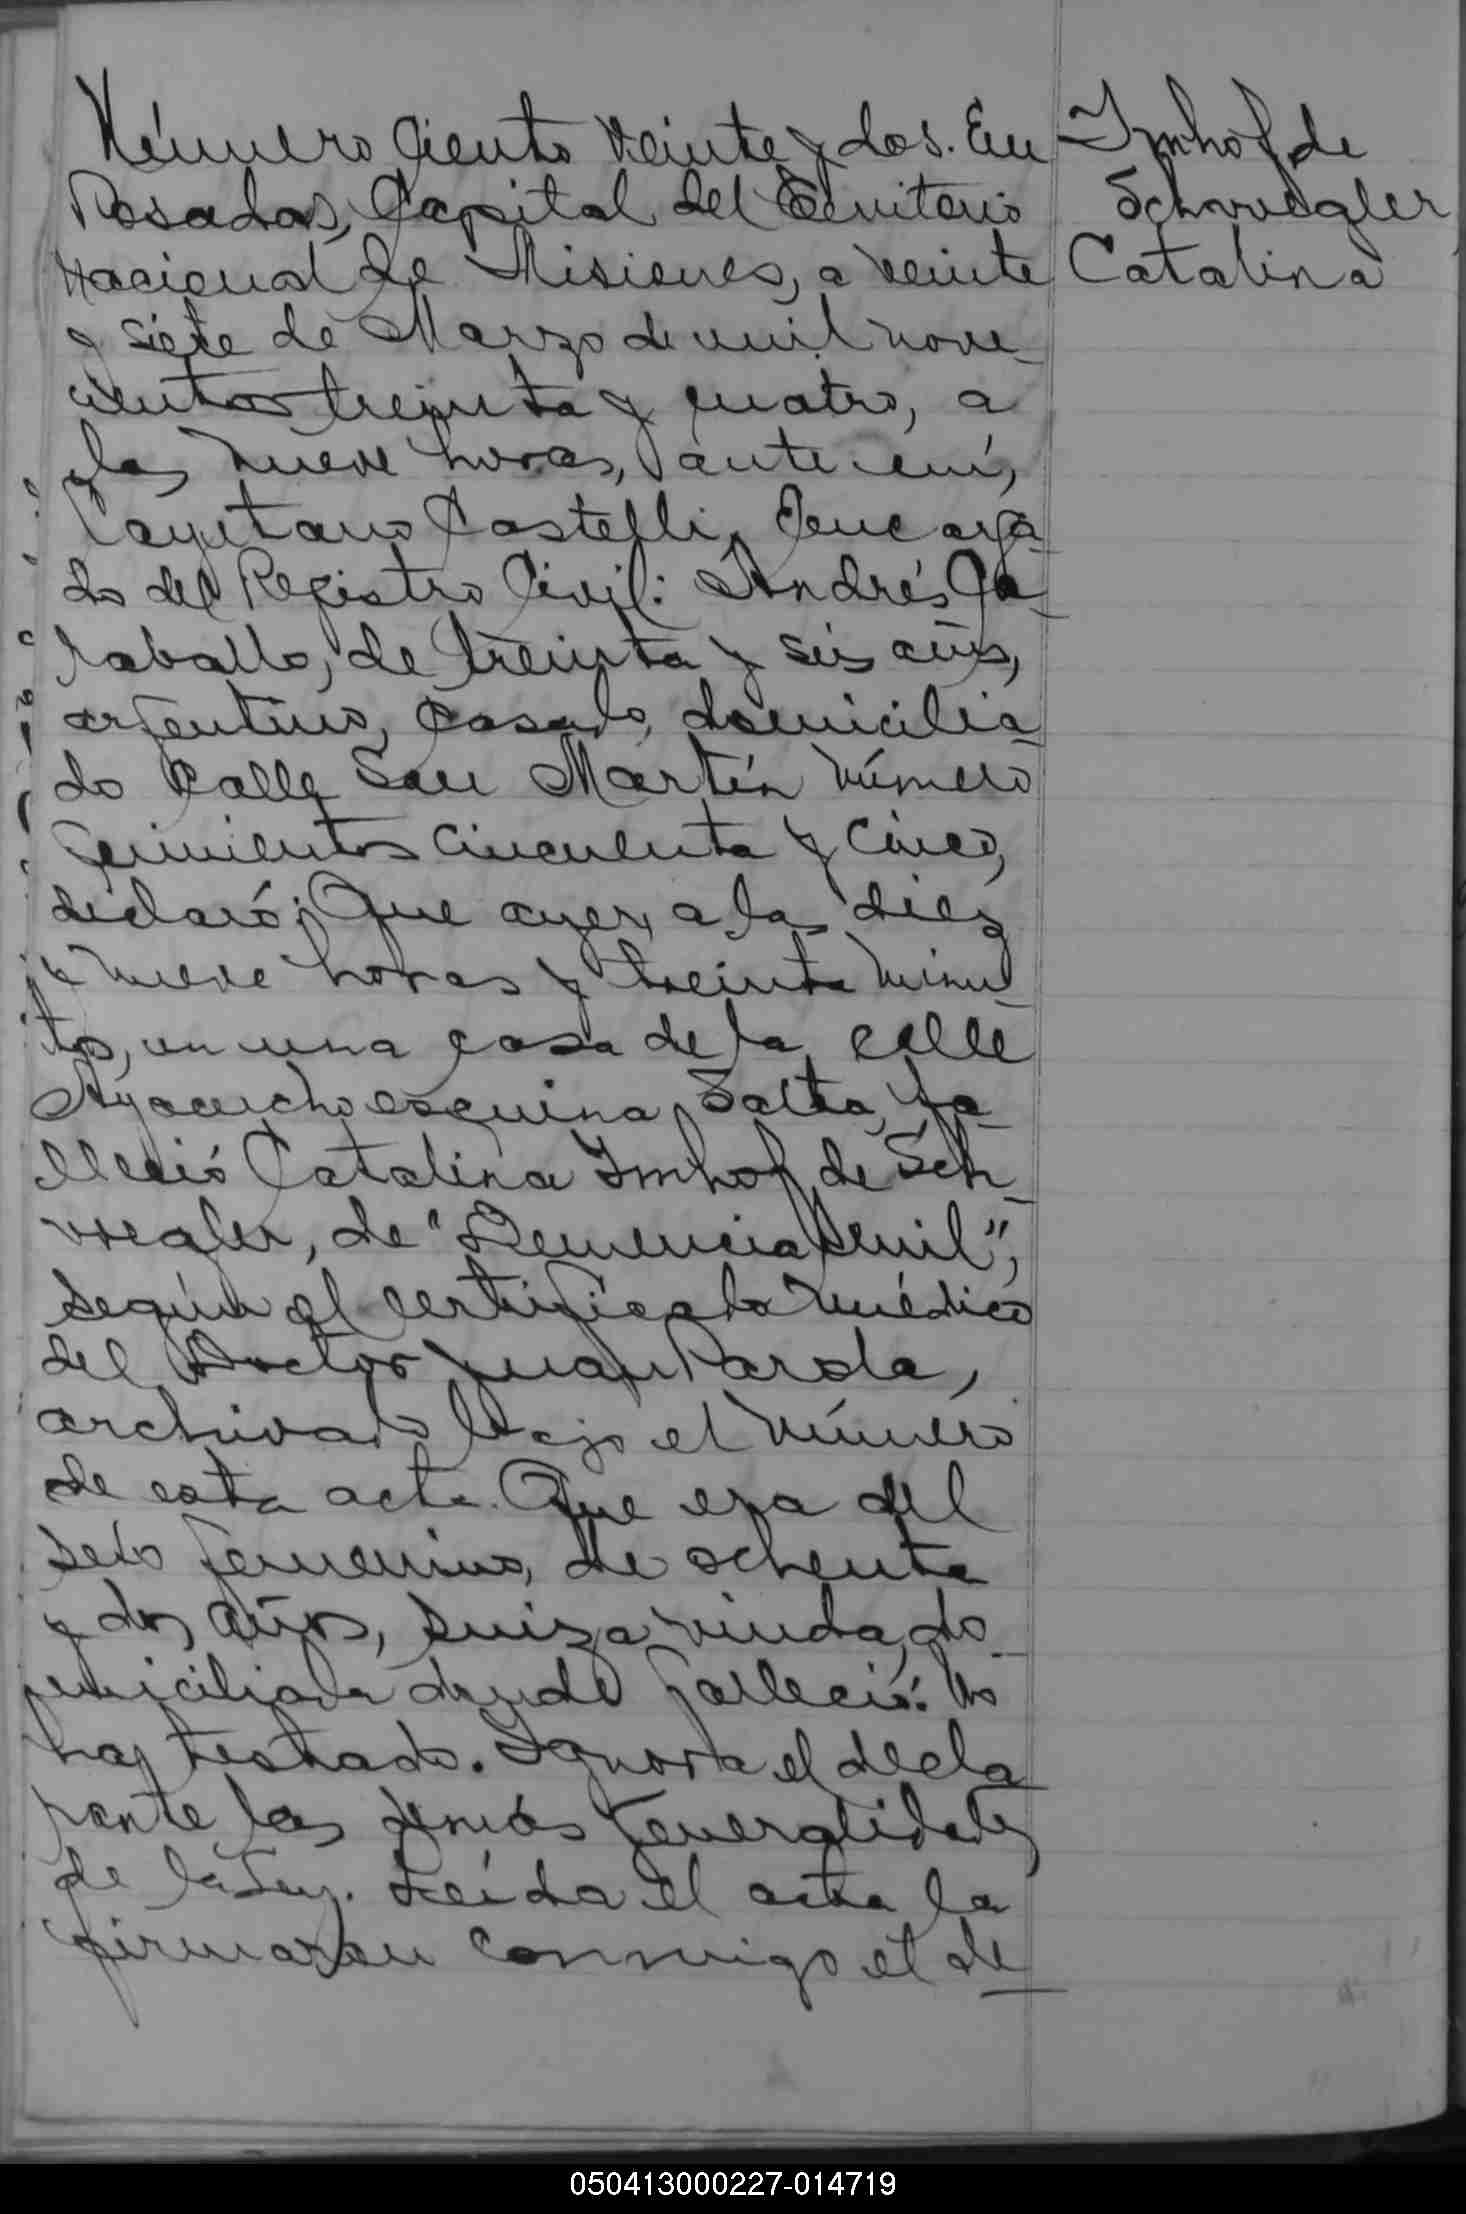 Número Ciento Veinte y dos. En
Posadas, Capital del Territorio
Nacional de Misiones, a veinte
y siete de Marzo de mil nove-
cientos treinta y cuatro, a
las nueve horas, ante mí,
Cayetano Castelli, Encarga-
do del Registro Civil: Andrés Ca-
raballo, de treinta y seis años,
argentino, casado, domicilia-
do calle San Martín número
quinientos cincuenta y cinco,
declaró: Que ayer, a las diez
y nueve horas y treinta minu-
tos, en una casa de la calle
Ayacucho esquina Salta, fa-
lleció Catalina Imhof de Sch-
wegler, de "Demencia senil",
según el certificado médico
del Doctor Juan Parola,
archivado bajo el número
de esta acta. Que era del
sexo femenino, de ochenta
y dos años, suiza, viuda, do-
miciliada donde falleció. No
ha testado. Ignora el decla-
rante las demás generalidades
de la Ley. Leída el acta la
firmaron conmigo el de-
Imhof de
Schwegler,
Catalina
050413000227-014719